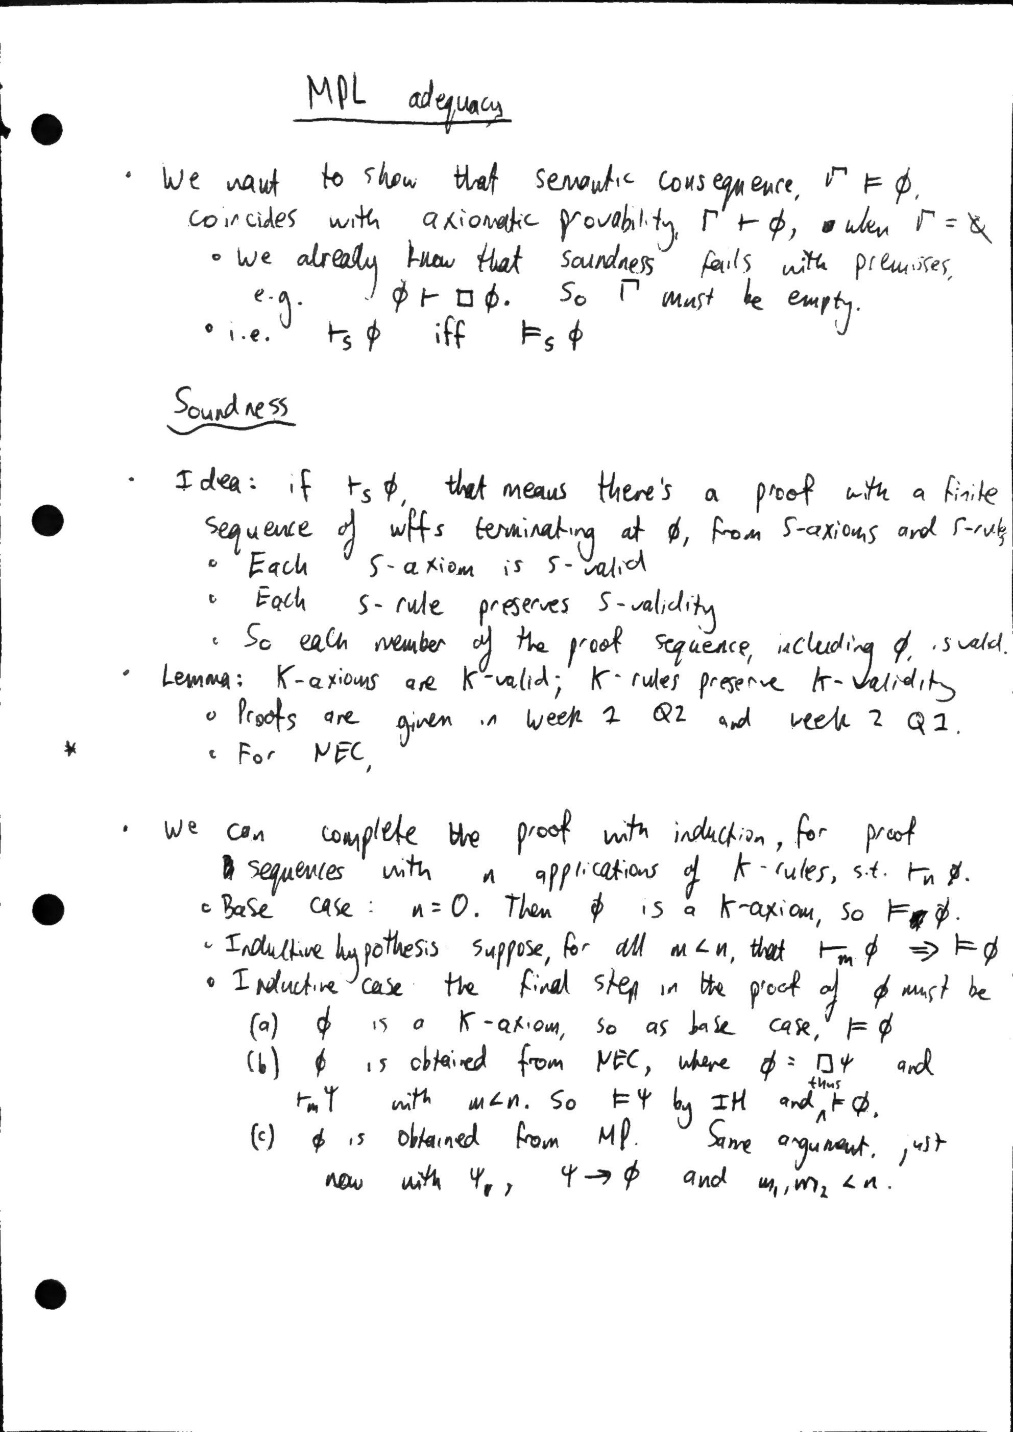 MPL adequacy
• We want to show that semantic consequence, Γ ⊨ ϕ,
coincides with axiomatic provability, Γ ⊢ ϕ, when Γ = ∅
∘ We already know that soundness fails with premises,
e.g. ϕ ⊢ □ϕ. So Γ must be empty.
∘ i.e. ⊢ₛ ϕ iff ⊨ₛ ϕ
Soundness
• Idea: if ⊢ₛ ϕ, that means there's a proof with a finite
sequence of wffs terminating at ϕ, from S-axioms and S-rules
∘ Each S-axiom is S-valid
∘ Each S-rule preserves S-validity
∘ So each member of the proof sequence, including ϕ, is valid.
• Lemma: K-axioms are K-valid; K-rules preserve K-validity
∘ Proofs are given in week 1 Q2 and week 2 Q1.
* ∘ For NEC,
• We can complete the proof with induction, for proof
sequences with n applications of K-rules, s.t. ⊢ₙ ϕ.
∘ Base case: n=0. Then ϕ is a K-axiom, so ⊨ ϕ.
∘ Inductive hypothesis suppose, for all m<n, that ⊢ₘ ϕ ⇒ ⊨ ϕ
∘ Inductive case the final step in the proof of ϕ must be
(a) ϕ is a K-axiom, so as base case, ⊨ ϕ
(b) ϕ is obtained from NEC, where ϕ = □ψ and
⊢ₘ ψ with m<n. So ⊨ ψ by IH and thus ⊨ ϕ.
(c) ϕ is obtained from MP. Same argument, just
now with ψ, ψ → ϕ and m₁, m₂ < n.